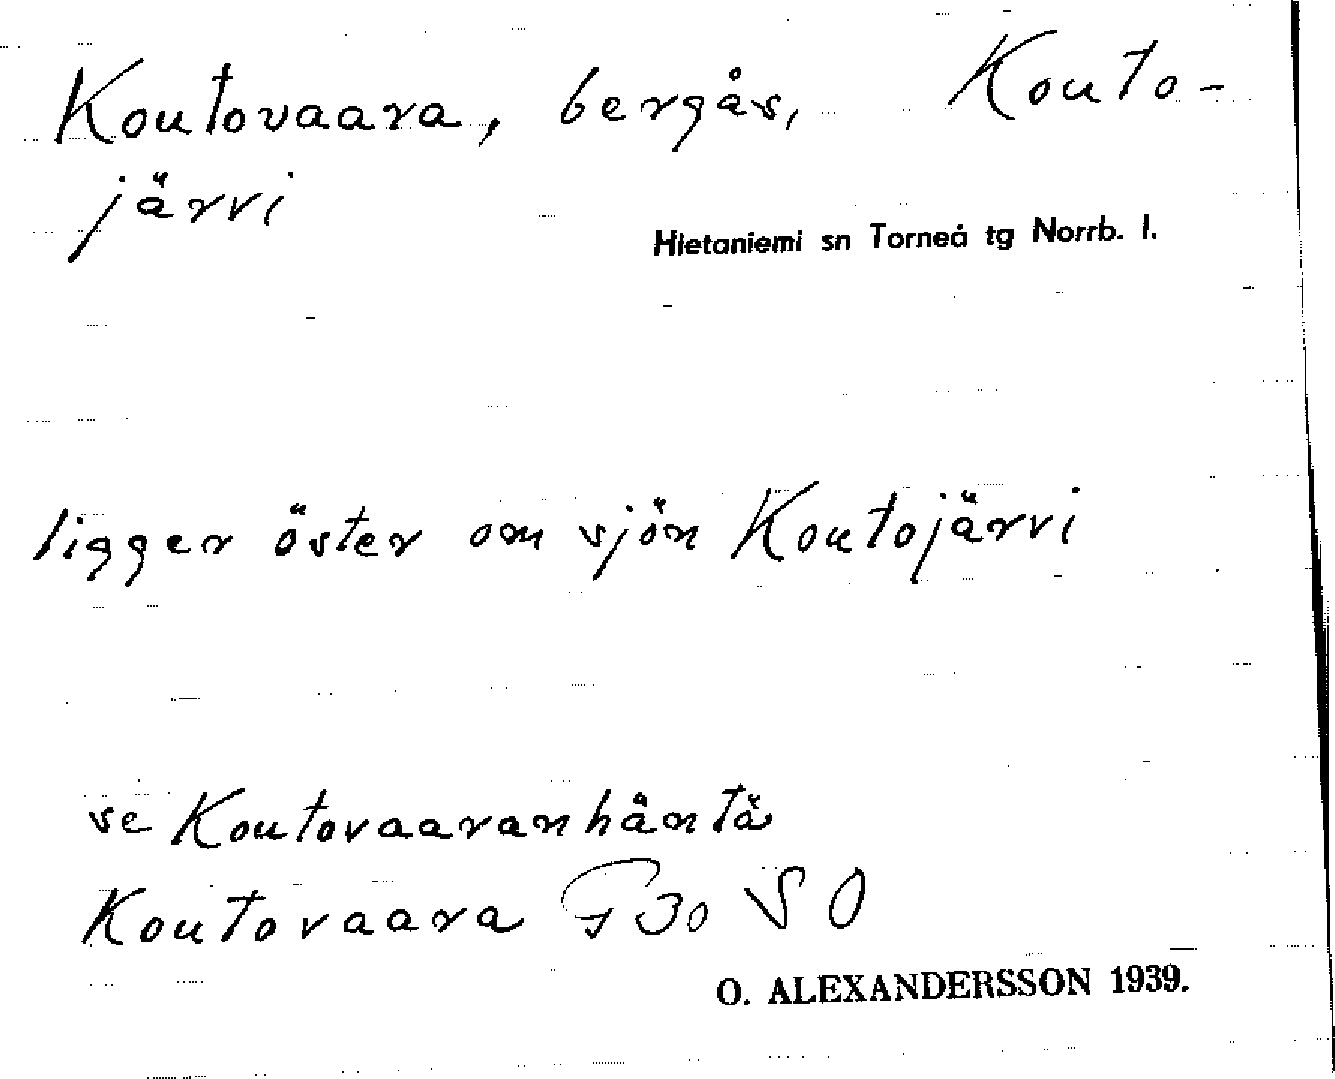 Koutovaara, bergås, Kouto-
järvi
Hietaniemi sn Torneå tg Norrb. l.
ligger öster om sjön Koutojärvi
se Koutovaaranhäntä
Koutovaara G 30 SO
O. ALEXANDERSSON 1939.